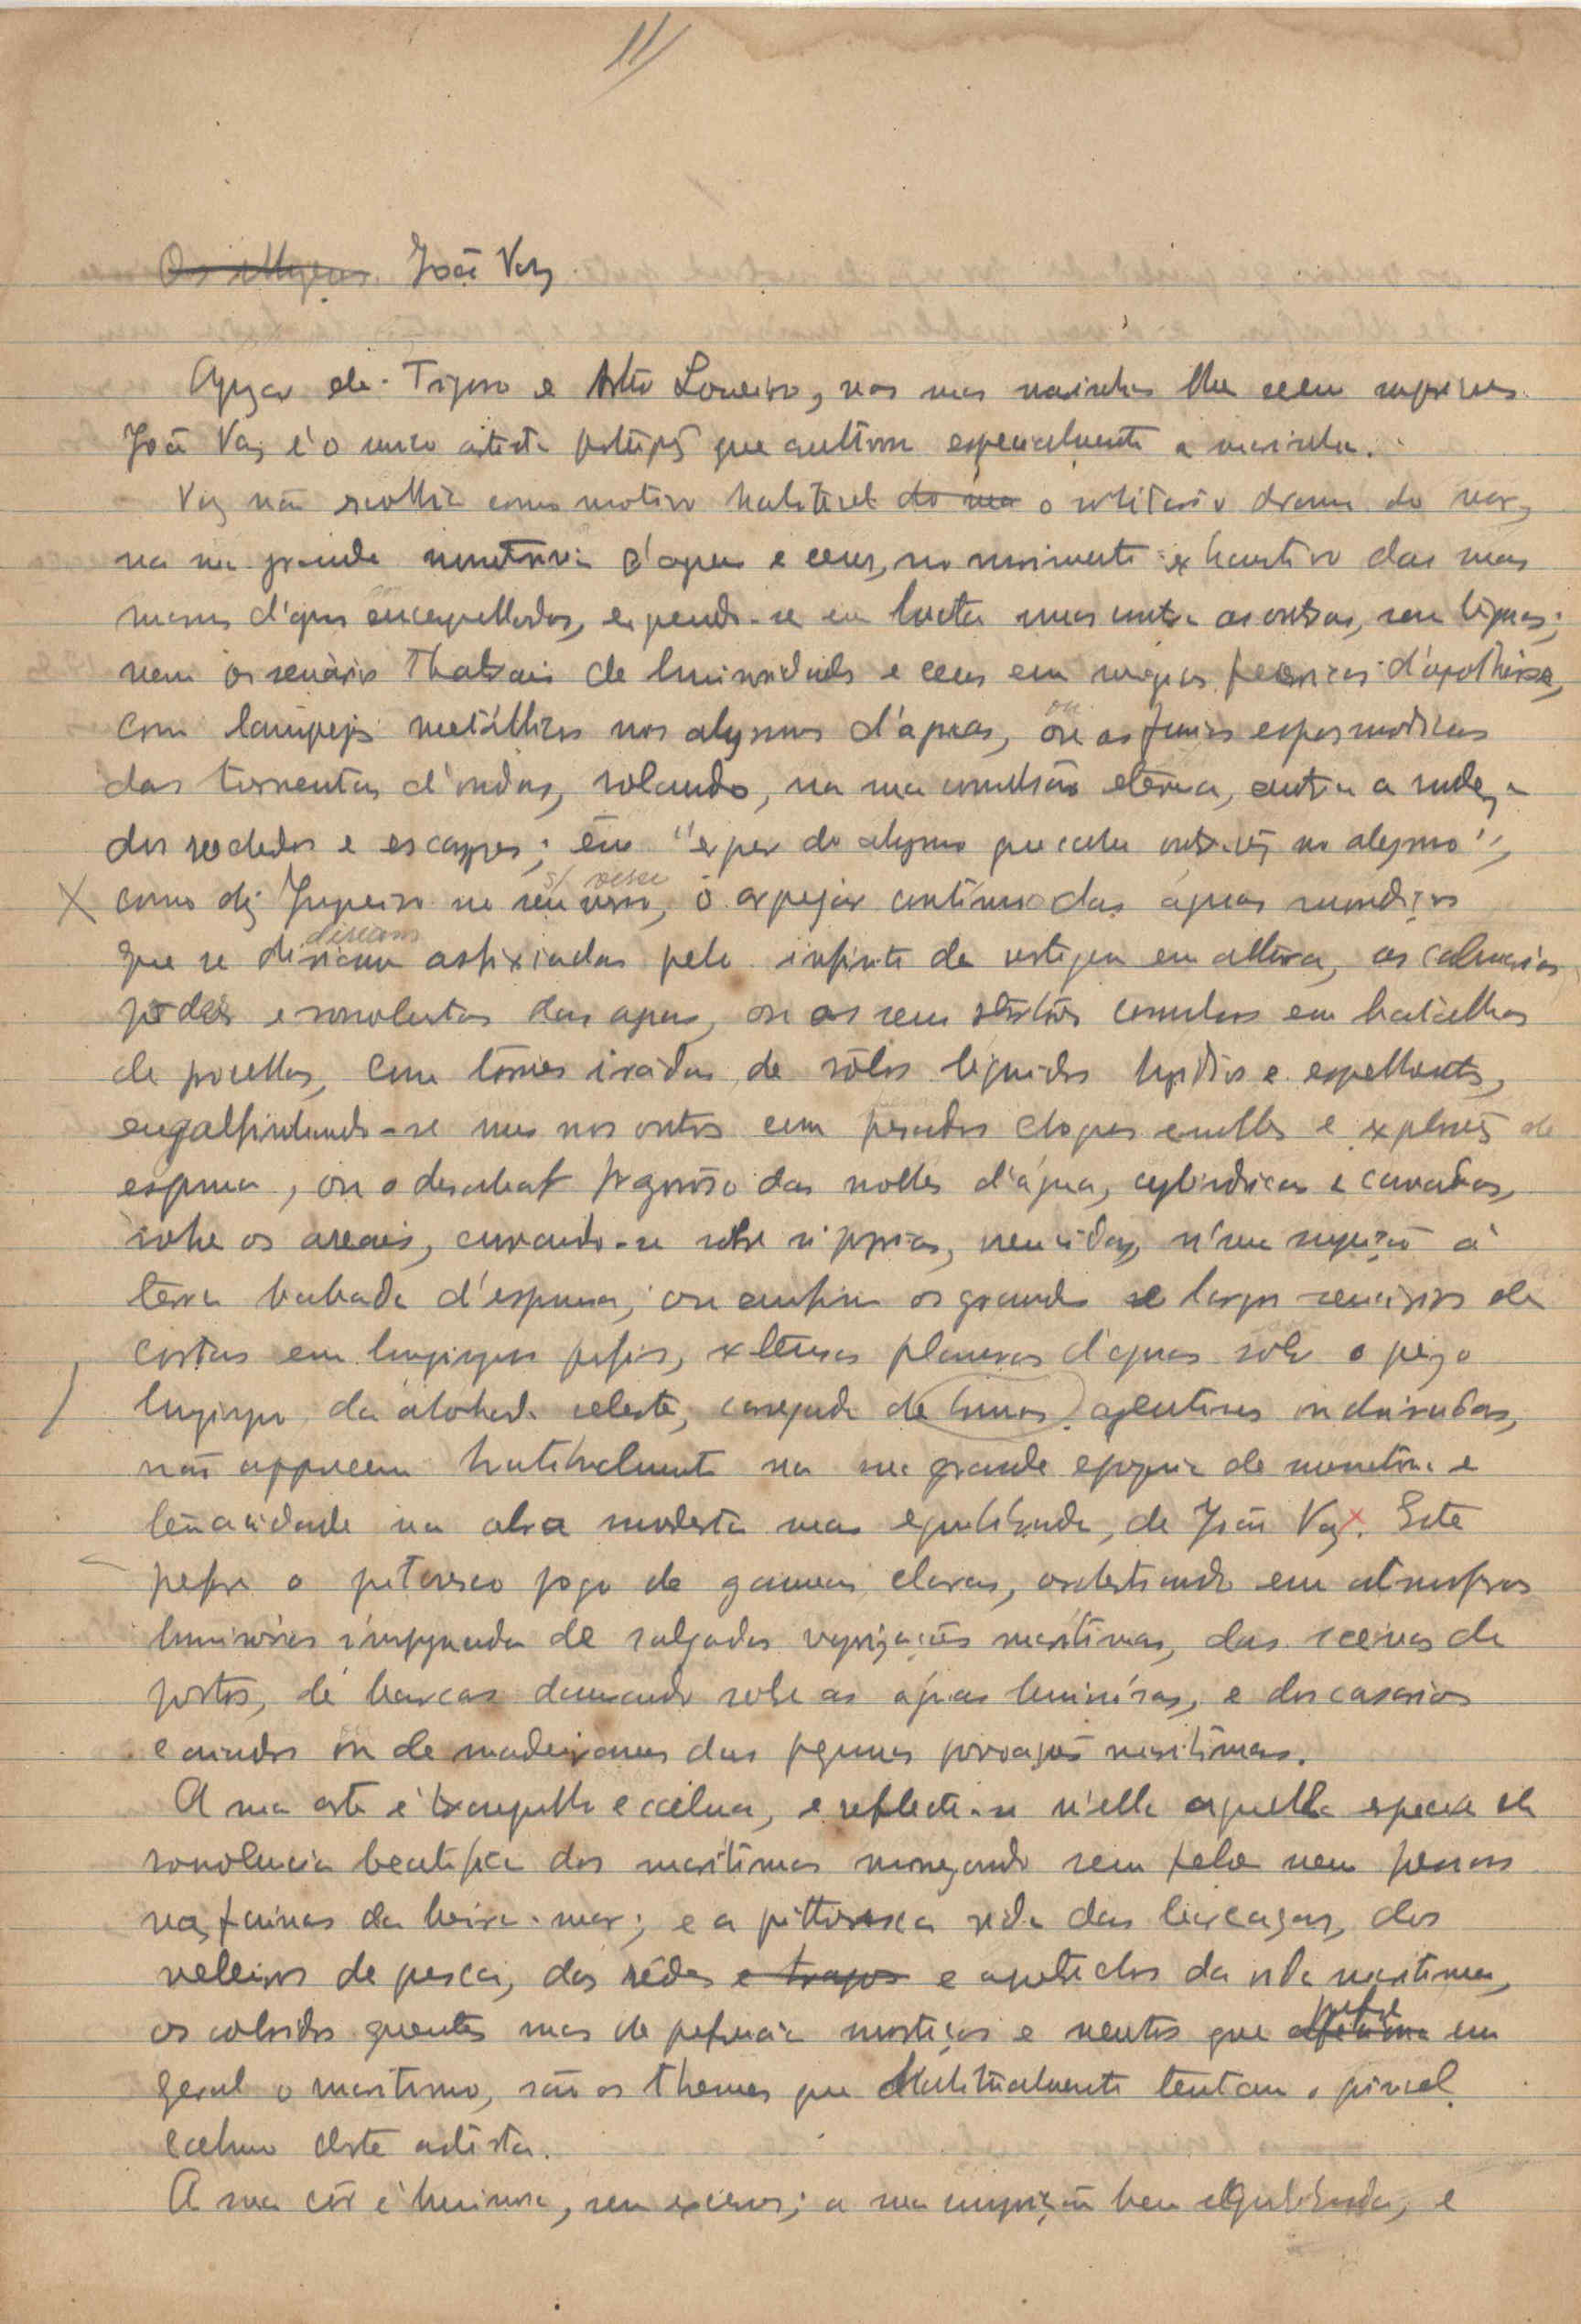 11
João Vaz
Apezar de Trigoso e Arthur Loureiro, nas suas marinhas lhe serem superiores
João Vaz é o unico artista português que cultiva especialmente a marinha.
Vaz não escolhe como motivo habitual do mar o solitario drama do mar,
na sua grande monotonia d'agua e ceus, no movimento exhaustivo das suas
massas d'agua encapelladas, erguendo-se em lucta umas contra as outras, sem
nem os scenarios de luminosidade e ceus em magicas d'apothéose,
com lampejos metállicos nos abysmos d'aguas, ou as furias espasmodicas
das tormentas d'ondas, rolando, na sua convulsão eterna, contra a rudeza
dos rochedos e escarpas; em "do abysmo que cahe outra vez no abysmo",
como diz Junqueiro no seu verso, s/ verso o arpejar continuo das aguas
que se diriam diriam asfixiadas pelo infinito da vertigem em altura, as calmarias
e somnolentas das aguas, ou as suas em batalhas
de procellas, com torres iradas de rôlos liquidos e
engalfinhando-se uns nos outros com pesados choques e explosões de
espuma, ou o desabar fragoroso das moles d'água, cylindricas e cavadas,
sobre os areais, curvando-se sobre si proprias, vencidas, n'uma sujeição á
terra babada d'espuma; ou emfim os grandes e largos scenarios de
costas em longinquos perfis, extensas planuras d'aguas sob o
longinquo da abobada celeste, carregada de brumas argentinas ou doiradas,
não apparecem habitualmente na sua grande epopeia de monotonia e
tenacidade na obra modesta mas equilibrada, de João Vaz. Este
prefere o pitoresco jogo de gammas claras, orchestrando em atmosferas
luminosas impregnadas de salgadas vaporizações maritimas, das scenas de
portos, de barcas dansando sobre as aguas luminosas, e dos casarios
caiados ou de madeira nas das pequenas povoações maritimas.
A sua arte é tranquilla e calma, e reflecte-se n'ella aquella especie de
sonolencia beatifica dos maritimos mourejando sem nem pressas
nas fainas da beira-mar; e a pittoresca vida das barcaças, dos
veleiros de pesca, das rêdes e trapos e apetrechos da vida maritima,
os coloridos quentes mas de preferencia mortiços e neutros que prefere em
geral o maritimo, são os themas que habitualmente tentam o pincel
calmo deste artista.
A sua côr é luminosa, sem excessos; a sua composição bem equilibrada, e